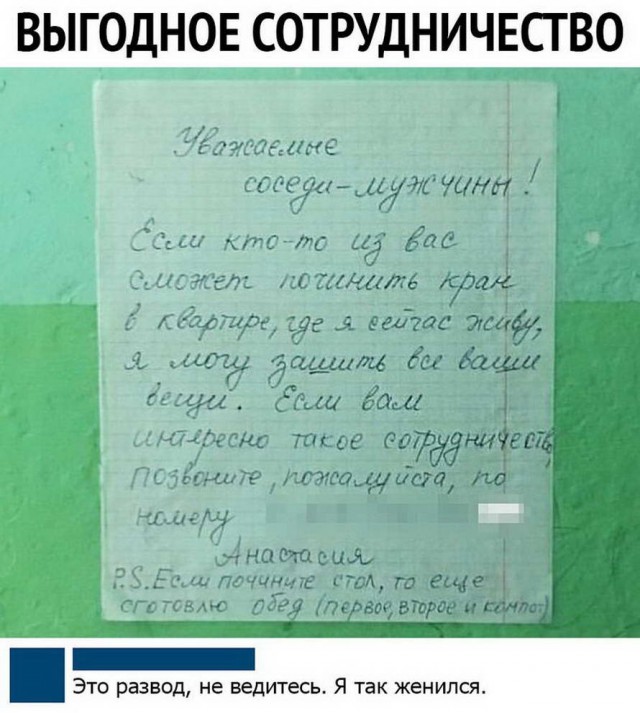 ВЫГОДНОЕ СОТРУДНИЧЕСТВО
Уважаемые
соседи-мужчины!
Если кто-то из вас
сможет починить кран
в квартире, где я сейчас живу,
я могу зашить все ваши
вещи. Если вам
интересно такое сотрудничеств
позвоните, пожалуйста, по
номеру
Анастасия
P.S. Если почините стол, то еще
сготовлю обед (первое, второе и компот)
Это развод, не ведитесь. Я так женился.